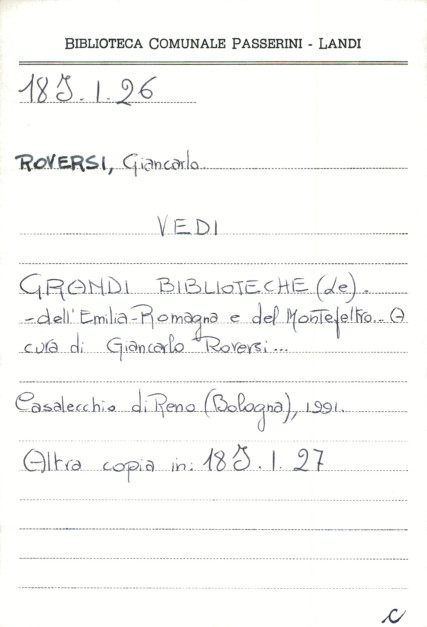 BIBLIOTECA COMUNALE PASSERINI - LANDI
18J.1.26
ROVERSI, Giancarlo
VEDI
GRANDI BIBLIOTECHE (Le).
-dell'Emilia-Romagna e del Montefeltro.. A
cura di Giancarlo Roversi...
Casalecchio di Reno (Bologna), 1991.
Altra copia in: 18J.1.27
c